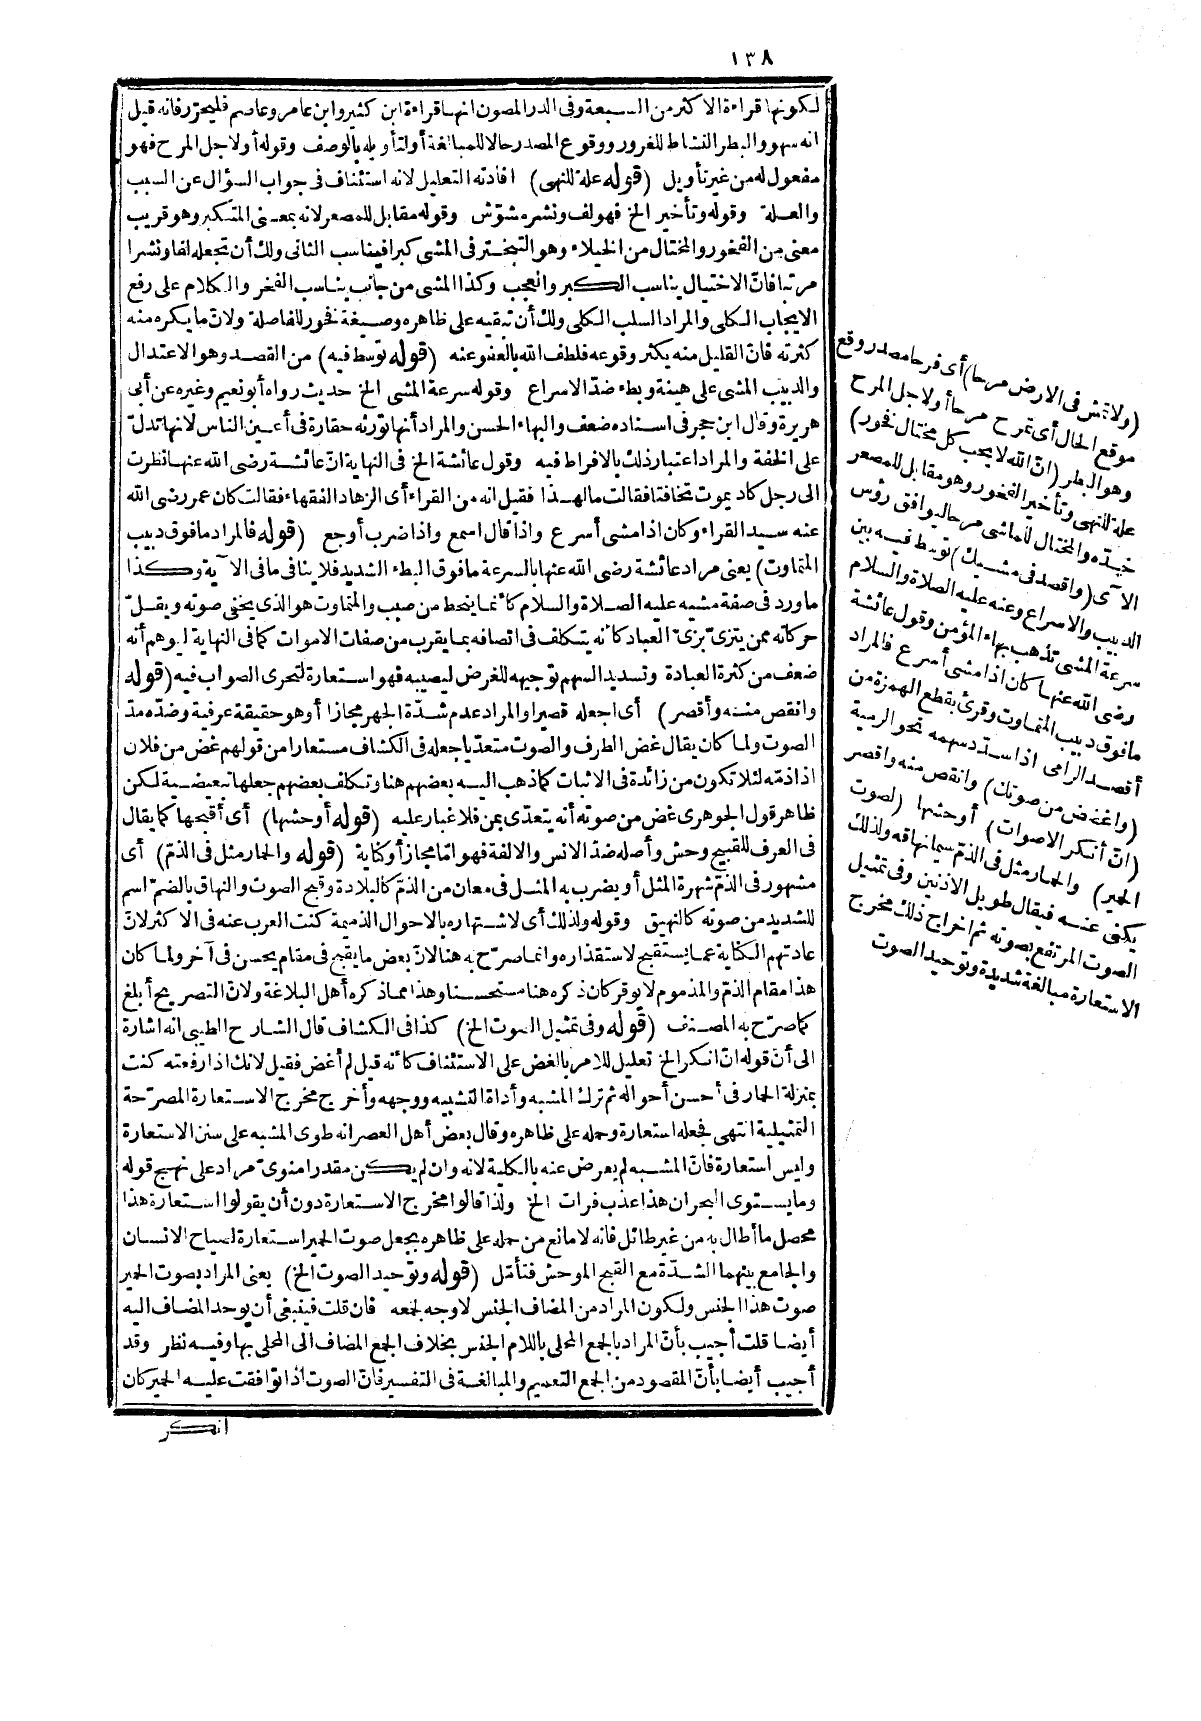 ١٣٨
لكونها قراءة الاكثر من السبعة وفى الدر المصون انها قراءة ابن كثير وابن عامر وعاصم فليحرّر فانه قيل
انه سهو والبطر النشاط للغرور ووقوع المصدر حالا للمبالغة أو لتأويله بالوصف وقوله أو لاجل المرح فهو
مفعول له من غير تأويل (قوله علة للنهى) افادته التعليل لانه استئناف فى جواب السؤال عن السبب
والعلة وقوله وتأخير الخ فهو لف ونشر مشوّش وقوله مقابل للمصعر لانه بمعنى المتكبر وهو قريب
معنى من الفخور والمختال من الخيلاء وهو التبختر فى المشى كبرا فيناسب الثانى ولك أن تجعله لفا ونشرا
مرتبا فانّ الاختيال يناسب الكبر والعجب وكذا المشى من جانب يناسب الفخر والكلام على رفع
الايجاب الكلى والمراد السلب الكلى ولك أن تبقيه على ظاهره وصيغة فخور للفاصلة ولانّ ما يكره منه
كثرته فانّ القليل منه يكثر وقوعه فلطف الله بالعفو عنه (قوله توسط فيه) من القصد وهو الاعتدال
والدبيب المشى على هينة وبطء ضدّ الاسراع وقوله سرعة المشى الخ حديث رواه أبو نعيم وغيره عن أبى
هريرة وقال ابن حجر فى اسناده ضعف والبهاء الحسن والمراد أنها تورثه حقارة فى أعين الناس لانها تدلّ
على الخفة والمراد اعتبار ذلك بالافراط فيه وقول عائشة الخ فى النهاية انّ عائشة رضى الله عنها نظرت
الى رجل كاد يموت تخافتا فقالت ما لهذا فقيل انه من القراء أى الزهاد الفقهاء فقالت كان عمر رضى الله
عنه سيد القراء وكان اذا مشى أسرع واذا قال اسمع واذا ضرب أوجع (قوله فالمراد ما فوق دبيب
المتماوت) يعنى مراد عائشة رضى الله عنها بالسرعة ما فوق البطء الشديد فلا ينافى ما فى الآية وكذا
ما ورد فى صفة مشيه عليه الصلاة والسلام كأنما ينحط من صبب والمتماوت هو الذى يخفى صوته ويقلّ
حركاته ممن يتزىّ بزىّ العباد كأنه يتكلف فى اتصافه بما يقرب من صفات الاموات كما فى النهاية ليوهم أنه
ضعف من كثرة العبادة وتسديد السهم توجيهه للغرض ليصيبه فهو استعارة لتحرى الصواب فيه (قوله
وانقص منه وأقصر) أى اجعله قصيرا والمراد عدم شدّة الجهر مجازا أو هو حقيقة عرفية وضدّه مدّ
الصوت ولما كان يقال غض الطرف والصوت متعدّيا جعله فى الكشاف مستعارا من قولهم غض من فلان
اذا ذمّه لئلا تكون من زائدة فى الاثبات كما ذهب اليه بعضهم هنا وتكلف بعضهم جعلها تبعيضية لكن
ظاهر قول الجوهرى غض من صوته أنه يتعدّى بمن فلا غبار عليه (قوله أوحشها) أى أقبحها كما يقال
فى العرف للقبيح وحش وأصله ضدّ الانس والالفة فهو امّا مجاز أو كناية (قوله والحمار مثل فى الذمّ) أى
مشهور فى الذمّ شهرة المثل أو يضرب به المثل فى معان من الذمّ كالبلادة وقبح الصوت والنهاق بالضمّ اسم
للشديد من صوته كالنهيق وقوله ولذلك أى لاشتهاره بالاحوال الذميمة كنت العرب عنه فى الاكثر لانّ
عادتهم الكناية عما يستقبح لاستقذاره وانما صرّح به هنا لانّ بعض ما يقبح فى مقام يحسن فى آخر ولما كان
هذا مقام الذمّ والمذموم لا يوقر كان ذكره هنا مستحسنا وهذا مما ذكره أهل البلاغة ولانّ التصريح أبلغ
كما صرّح به المصنف (قوله وفى تمثيل الصوت الخ) كذا فى الكشاف قال الشارح الطيبى انه اشارة
الى أن قوله انّ انكر الخ تعليل للامر بالغض على الاستئناف كأنه قيل لم أغض فقيل لانك اذا رفعته كنت
بمنزلة الحمار فى أحسن أحواله ثم ترك المشبه وأداة التشبيه ووجهه وأخرج مخرج الاستعارة المصرّحة
التمثيلية انتهى فجعله استعارة وحمله على ظاهره وقال بعض أهل العصر انه طوى المشبه على سنن الاستعارة
وليس استعارة فانّ المشبه لم يعرض عنه بالكلية لانه وان لم يكن مقدرا منوىّ مراد على نهج قوله
وما يستوى البحران هذا عذب فرات الخ ولذا قالوا مخرج الاستعارة دون أن يقولوا استعارة هذا
محصل ما أطال به من غير طائل فانه لا مانع من حمله على ظاهره بجعل صوت الحمير استعارة لصياح الانسان
والجامع بينهما الشدّة مع القبح الموحش فتأمّل (قوله وتوحيد الصوت الخ) يعنى المراد بصوت الحمير
صوت هذا الجنس ولكون المراد من المضاف الجنس لا وجه لجمعه فان قلت فينبغى أن يوحد المضاف اليه
أيضا قلت أجيب بأنّ المراد بالجمع المحلى باللام الجنس بخلاف الجمع المضاف الى المحلى بها وفيه نظر وقد
أجيب أيضا بأنّ المقصود من الجمع التعميم والمبالغة فى التنفير فانّ الصوت اذا توافقت عليه الحمير كان
انكر
(ولا تمش فى الارض مرحا) أى فرحا مصدر وقع
موقع الحال أى تمرح مرحا أو لاجل المرح
وهو البطر (انّ الله لا يحب كل مختال فخور)
علة للنهى وتأخير الفخور وهو مقابل للمصعر
خدّه والمختال للماشى مرحا ليوافق رؤس
الآى (واقصد فى مشيك) توسط فيه بين
الدبيب والاسراع وعنه عليه الصلاة والسلام
سرعة المشى تذهب بهاء المؤمن وقول عائشة
رضى الله عنها كان اذا مشى أسرع فالمراد
ما فوق دبيب المتماوت وقرئ بقطع الهمزة من
أقصد الرامى اذا سدّد سهمه نحو الرمية
(واغضض من صوتك) وانقص منه واقصر
(انّ أنكر الاصوات) أوحشها (لصوت
الحمير) والحمار مثل فى الذمّ سيما نهاقه ولذلك
يكنى عنه فيقال طويل الاذنين وفى تمثيل
الصوت المرتفع بصوته ثم اخراج ذلك مخرج
الاستعارة مبالغة شديدة وتوحيد الصوت